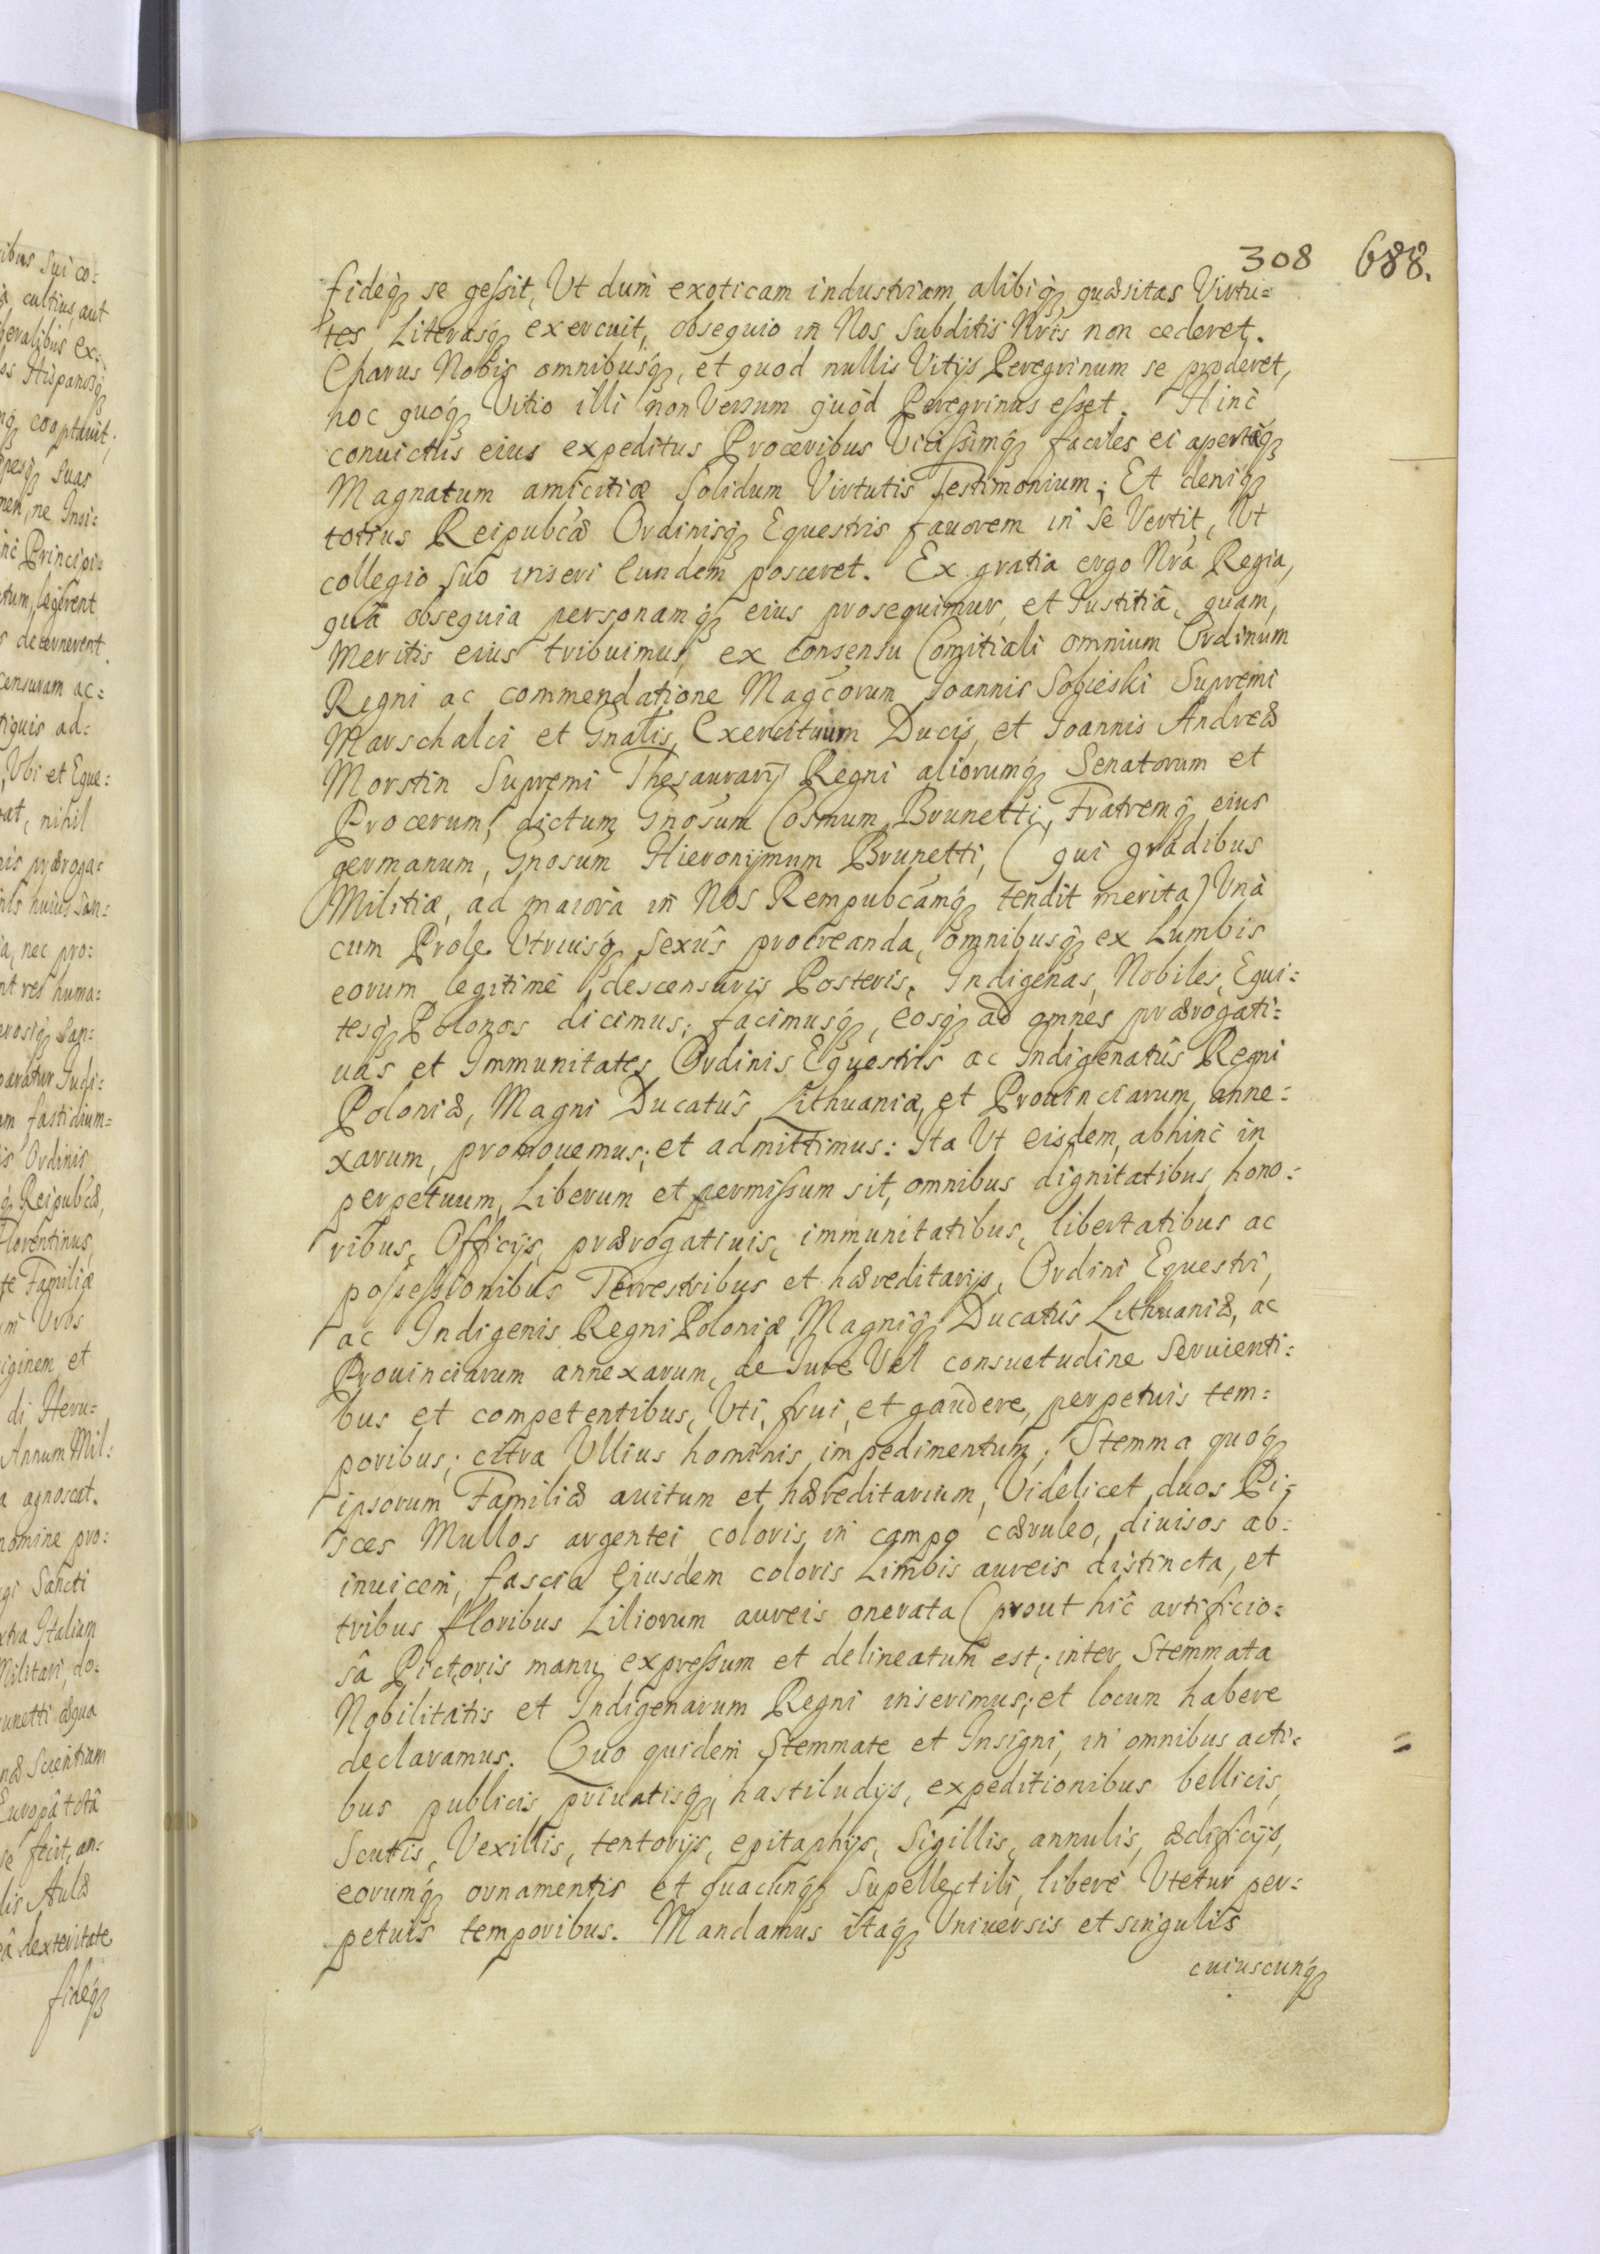 308 688.
fideq́ꝫ se gessit, Ut dum exoticam industriam alibiq́ꝫ quæsitas Virtu=
tes Literasq́ꝫ exercuit, obsequio in Nos Subditis Nris non cederet.
Charus Nobis omnibusq́ꝫ, et quod nullis Vitijs Peregrinum se proderet,
hoc quoq́ꝫ Vitio illi non Versum quòd Peregrinus esset. Hinc
convictus eius expeditus Proceribus Vicissimq́ꝫ faciles ei apertæq́ꝫ
Magnatum amicitiæ Solidum Virtutis Testimonium; Et deniq́ꝫ
totius Reipubcæ Ordinisq́ꝫ Equestris fauorem in se Vertit, Ut
collegio suo inseri Eundem posceret. Ex gratia ergo Nrâ Regia,
quâ obsequia personamq́ꝫ eius prosequimur, et Iustitiâ, quam,
Meritis eius tribuimus, ex consensu Comitiali omnium Ordinum
Regni ac commendatione Magcorum Ioannis Sobieski Supremi
Marschalci et Gnalis Exercituum Ducis, et Ioannis Andreæ
Morstin Supremi Thesaurarij Regni aliorumq́ꝫ Senatorum et
Procerum, dictum Gnosum Cosmum Brunetti, Fratremq́ꝫ eius
germanum, Gnosum Hieronymum Brunetti, (qui gradibus
Militiæ, ad maiora in Nos Rempubcamq́ꝫ tendit merita) Unà
cum Prole Utriusq́ꝫ Sexûs procreanda, omnibusq́ꝫ ex Lumbis
eorum legitimè descensuris Posteris, Indigenas, Nobiles, Equi=
tesq́ꝫ Polonos dicimus; facimusq́ꝫ, eosq́ꝫ ad omnes prærogati=
uas et Immunitates Ordinis Equestris ac Indigenatûs Regni
Poloniæ, Magni Ducatûs Lithuaniæ, et Prouinciarum anne=
xarum, promouemus; et admittimus: Ita Ut eisdem, abhinc in
perpetuum, Liberum et permissum sit, omnibus dignitatibus, hono=
ribus, Officijs, prærogatiuis, immunitatibus, libertatibus ac
possessionibus Terrestribus et hæreditarijs, Ordini Equestri,
ac Indigenis Regni Poloniæ, Magniq́ꝫ Ducatûs Lithuaniæ, ac
Prouinciarum annexarum, de Iure Vel consuetudine Seruienti=
bus et competentibus, Uti, frui, et gaudere, perpetuis tem=
poribus; citra Ullius hominis impedimentum; Stemma quoq́ꝫ
ipsorum Familiæ auitum et hæreditarium, Videlicet duos Pi=
sces Mullos argentei coloris in campo cæruleo, diuisos ab=
inuicem, fascia eiusdem coloris Limbis aureis distincta, et
tribus floribus Liliorum aureis onerata (prout hîc artificio=
sâ Pictoris manu expressum et delineatum est; inter Stemmata
Nobilitatis et Indigenarum Regni inserimus; et locum habere
declaramus. Quo quidem Stemmate et Insigni, in omnibus acti=
bus publicis, priuatisq́ꝫ, hastiludijs, expeditionibus bellicis,
Scutis, Vexillis, tentorijs, epitaphijs, Sigillis, annulis, ædificijs,
eorumq́ꝫ ornamentis et quacunq́ꝫ Supellectili, liberè Utetur per=
petuis temporibus. Mandamus itaq́ꝫ Uniuersis et singulis
cuiuscunq́ꝫ